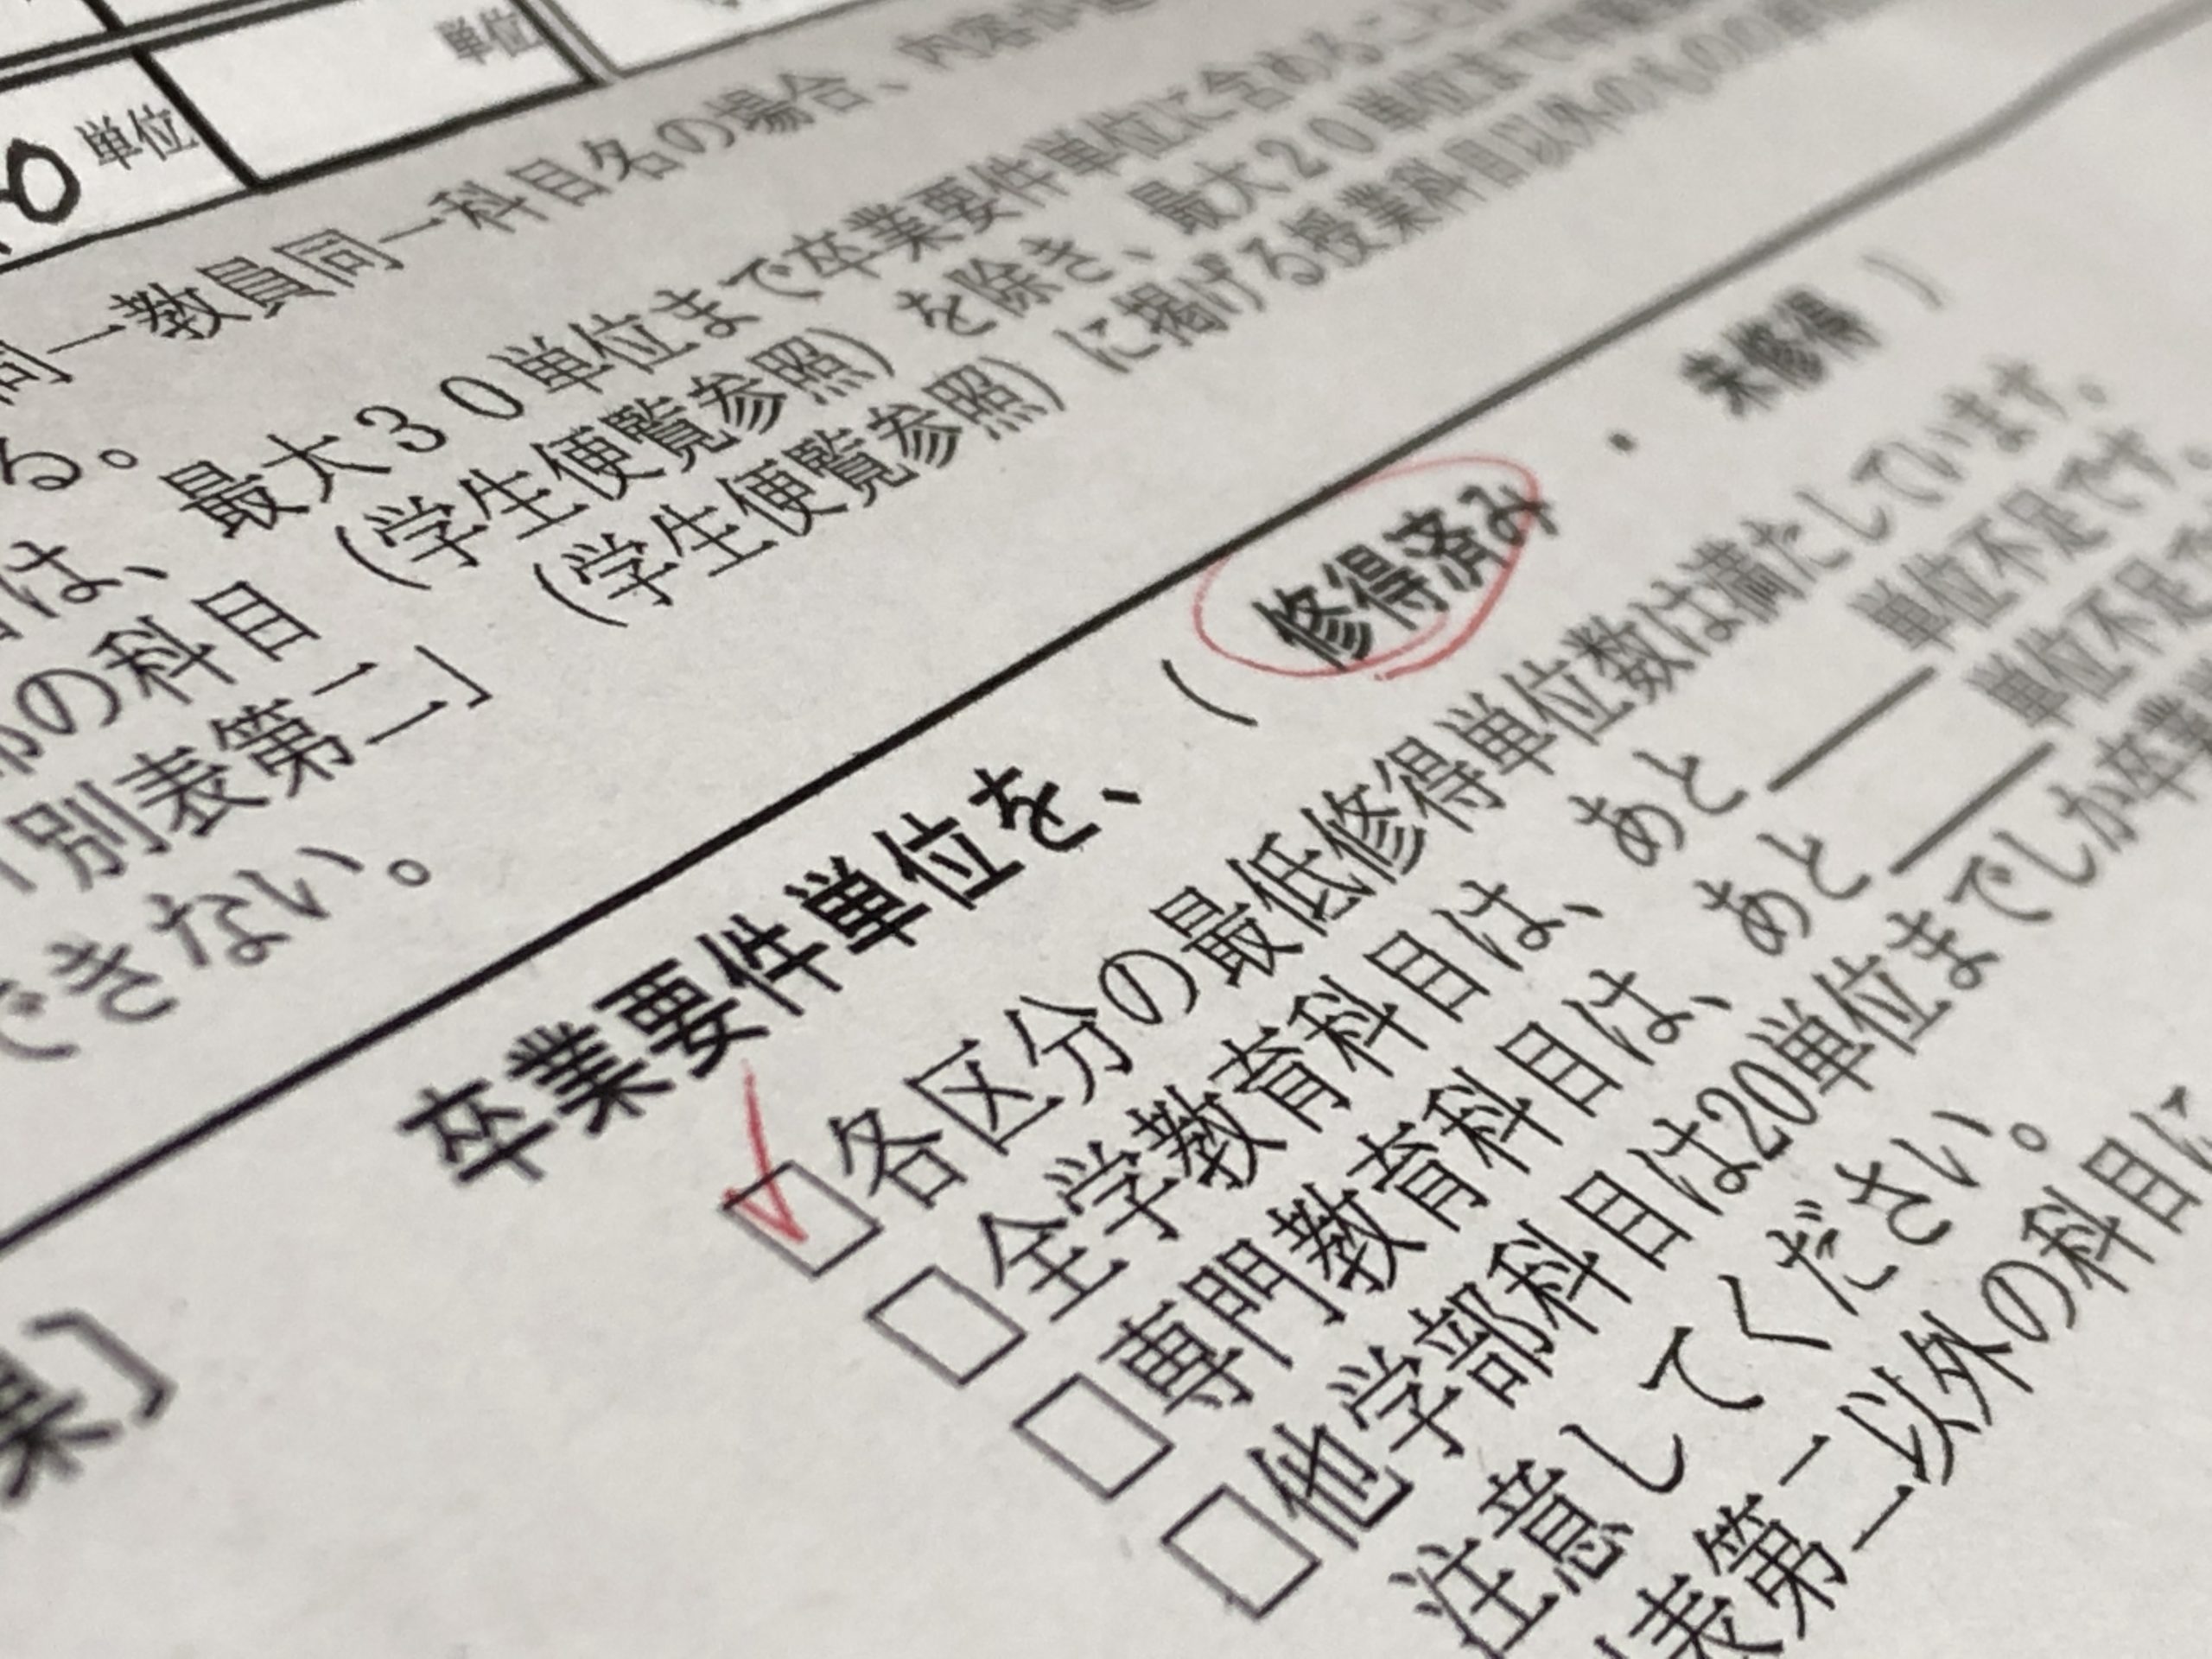 単位
0 単位
同一教員同一科目名の場合、内容や
る。
は、最大30単位まで卒業要件単位に含めること
の科目（学生便覧参照）を除き、最大20単位まで
別表第二］（学生便覧参照）に掲げる授業科目以外のものの
できない。
卒業要件単位を、（ 修得済み ・ 未修得 ）
□各区分の最低修得単位数は満たしています。
□全学教育科目は、あと____単位不足です。
□専門教育科目は、あと____単位不足で
□他学部科目は20単位までしか卒業
注意してください。
表第二以外の科目に
果］